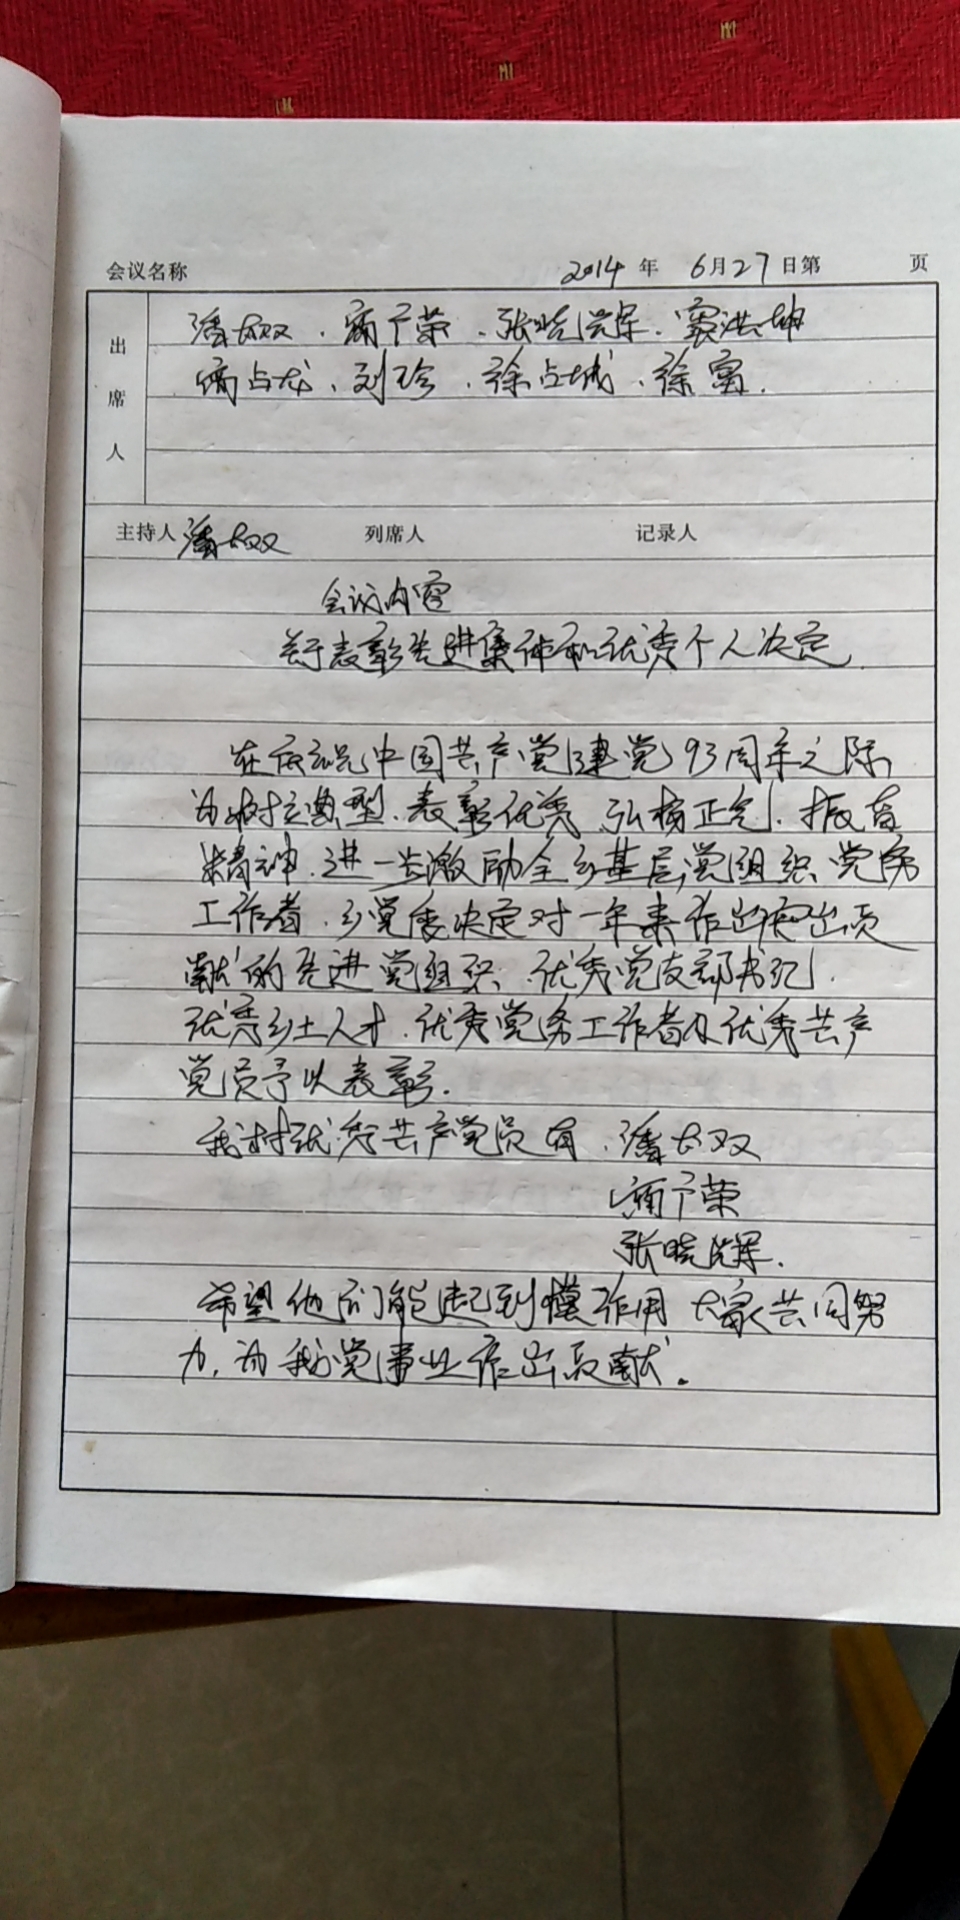 会议名称 2014 年 6月27日第 页
出席人
潘太双、 广荣、张晓辉、窦洪坤
占龙、刘珍、徐占城、徐富.
主持人 潘太双 列席人 记录人
会议内容
关于表彰先进集体和优秀个人决定
在庆祝中国共产党建党93周年之际,
为树立典型、表彰优秀、弘扬正气、振奋
精神、进一步激励全乡基层党组织党务
工作者、乡党委决定对一年来作出突出贡
献的先进党组织、优秀党支部书记、
优秀乡土人才、优秀党务工作者及优秀共产
党员予以表彰.
我村优秀共产党员有、潘太双
广荣
张晓辉.
希望他们能起到模作用 大家共同努
力,为我党事业作出贡献.